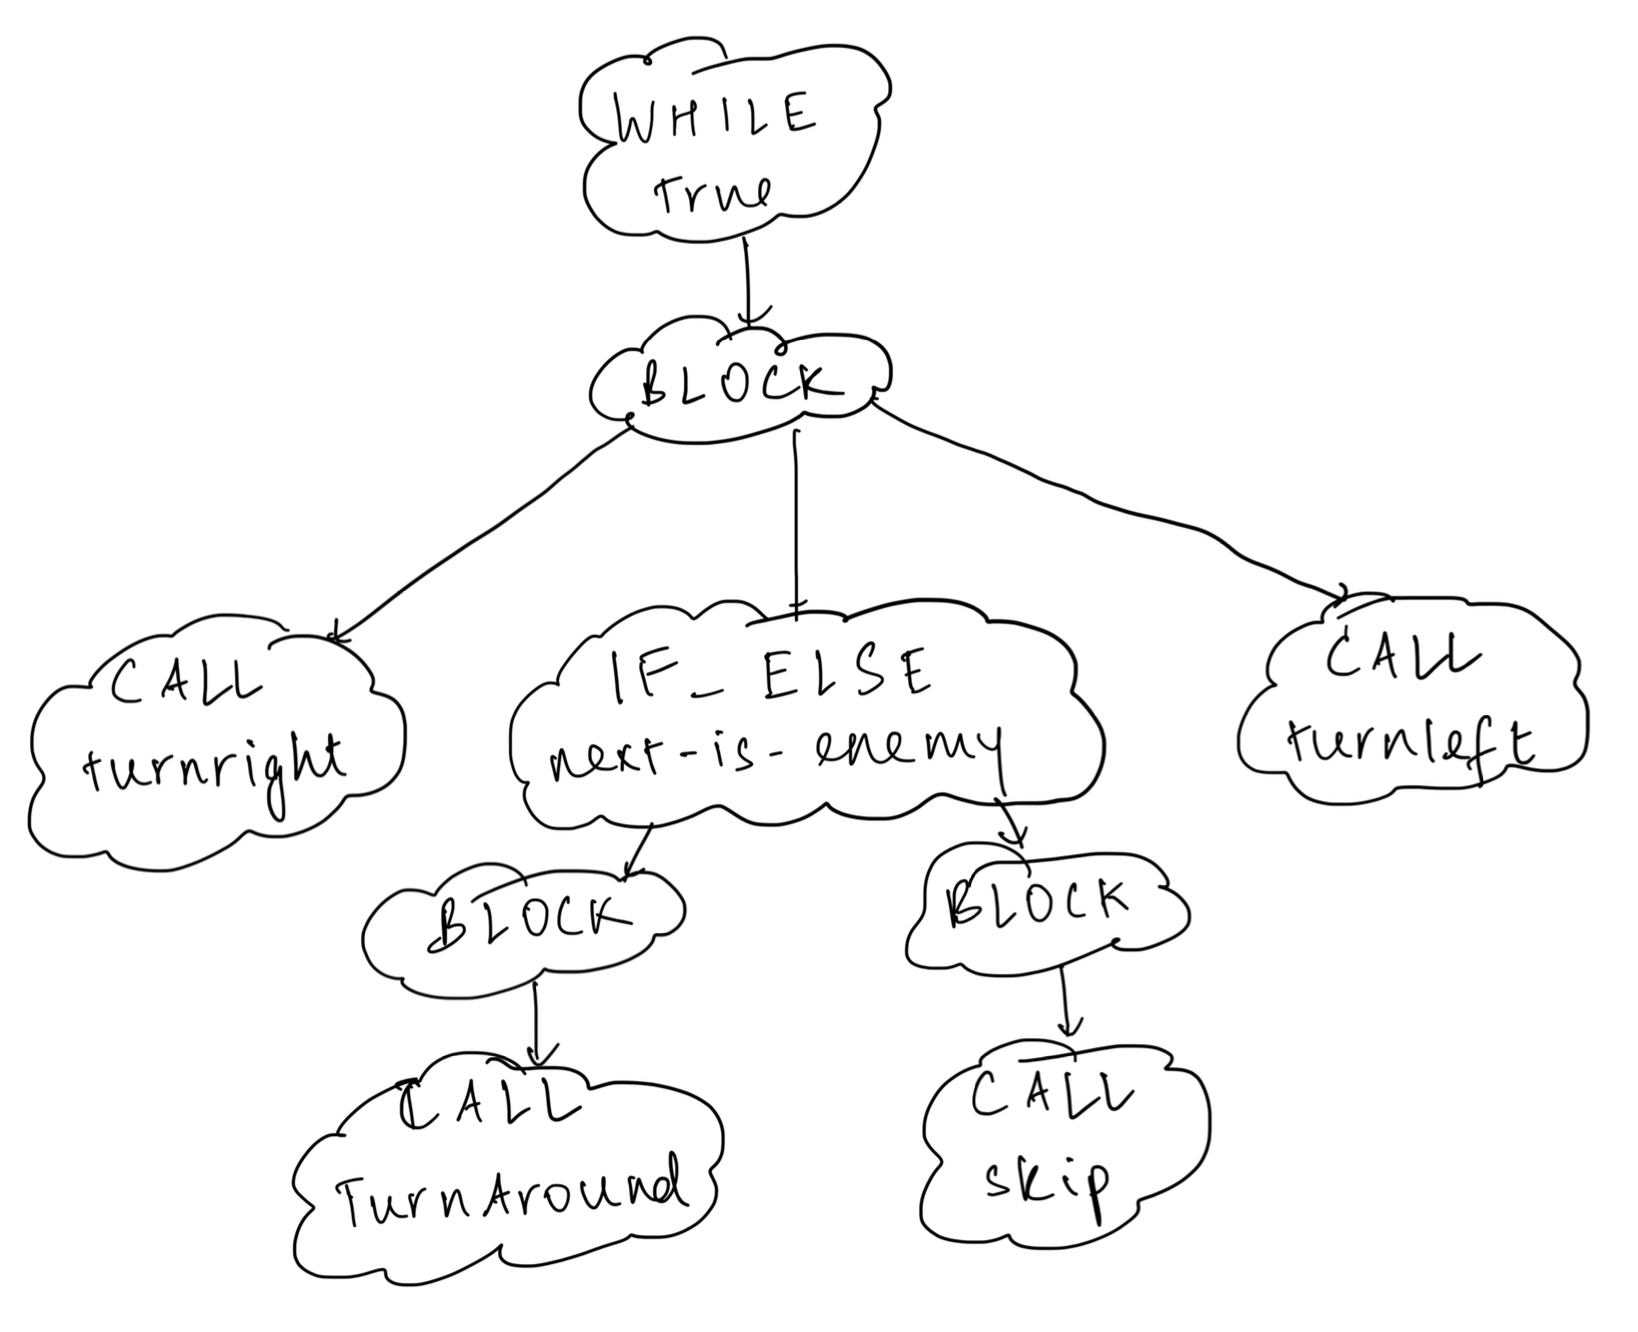 WHILE
True
BLOCK
CALL
turnright
IF_ELSE
next-is-enemy
CALL
turnleft
BLOCK
BLOCK
CALL
TurnAround
CALL
skip